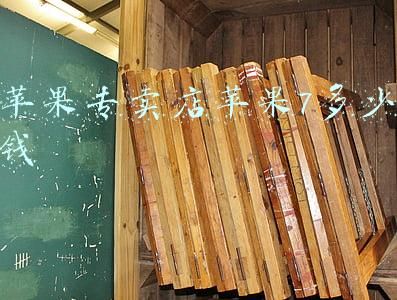 苹果专卖店苹果7多少
钱